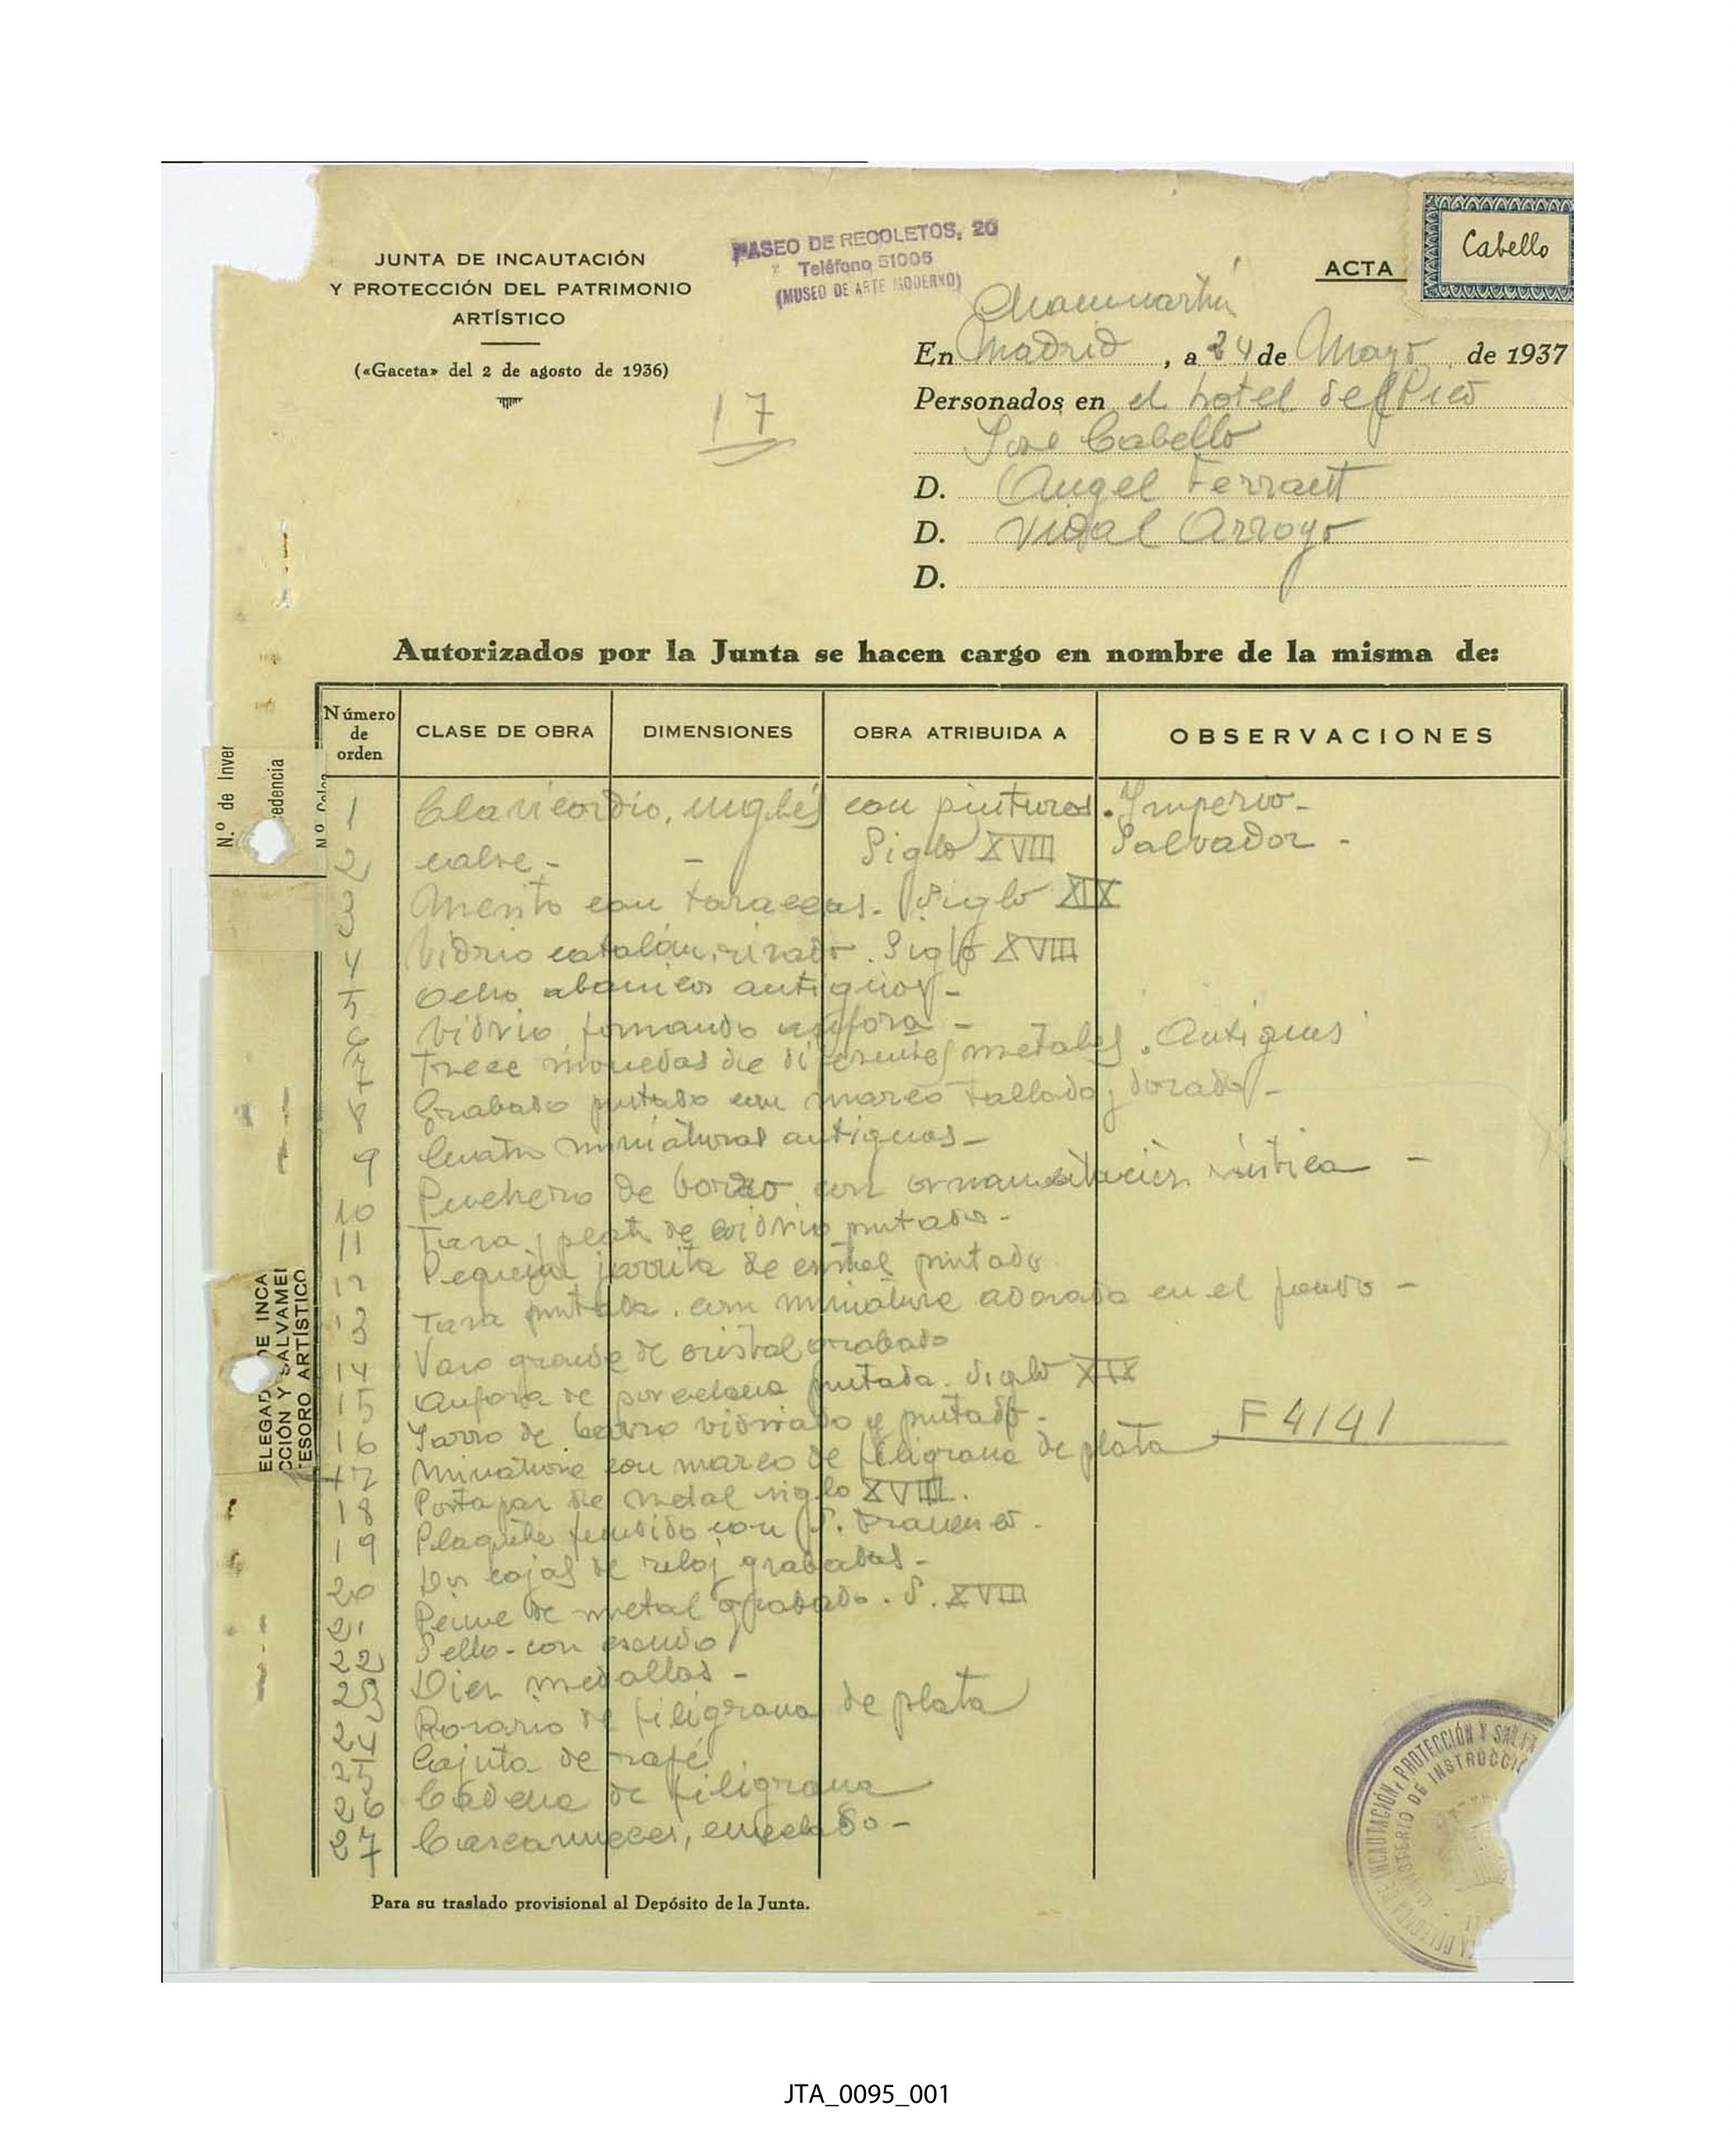 JUNTA DE INCAUTACIÓN
Y PROTECCIÓN DEL PATRIMONIO
ARTÍSTICO
(«Gaceta» del 2 de agosto de 1936)
17
PASEO DE RECOLETOS, 20
Teléfono 51006
(MUSEO DE ARTE MODERNO)
ACTA
Cabello
Chamartín
En Madrid, a 24 de Mayo de 1937
Personados en el hotel del
Jose Cabello
D. Angel Ferrant
D. Vidal Arroyo
D.
Autorizados por la Junta se hacen cargo en nombre de la misma de:
Número de orden
CLASE DE OBRA
DIMENSIONES
OBRA ATRIBUIDA A
OBSERVACIONES
1 Clavicordio, inglés con pinturas. Imperio-
2 - Siglo XVIII Salvador -
3 con taraceas. Siglo XIX
4 Vidrio catalán, rizado. Siglo XVIII
5 Ocho abanicos antiguos-
6 Vidrio formando anfora -
7 Trece monedas de diferentes metales. Antiguas
8 Grabado pintado con marco tallado y dorado-
9 Cuatro miniaturas antiguas-
10 Puchero de barro con ornamentación rústica -
11 Taza y plato de vidrio pintado-
12 Pequeña jarrita de cristal pintado
13 Taza pintada con miniatura adorada en el fondo -
14 Vaso grande de cristal grabado
15 Anfora de porcelana pintada. Siglo XIX
16 Jarro de barro vidriado y pintado-
17 Miniatura con marco de filigrana de plata F 4141
18 Portapaz de metal siglo XVIII.
19 Plaquita fundido con S. Francisco.
20 Dos cajas de reloj grabadas-
21 Peine de metal grabado. S. XVIII
22 Sello-con escudo
23 Diez medallas -
24 Rosario de filigrana de plata
25 Cajita de rapé
26 Cadena de filigrana
27 Cascanueces, cincelado-
Para su traslado provisional al Depósito de la Junta.
N.º de Inver
edencia
ELEGAD DE INCA
CCIÓN Y SALVAMEI
TESORO ARTÍSTICO
INCAUTACIÓN, PROTECCIÓN Y SALVA
MINISTERIO DE INSTRUCCIÓ
JTA_0095_001